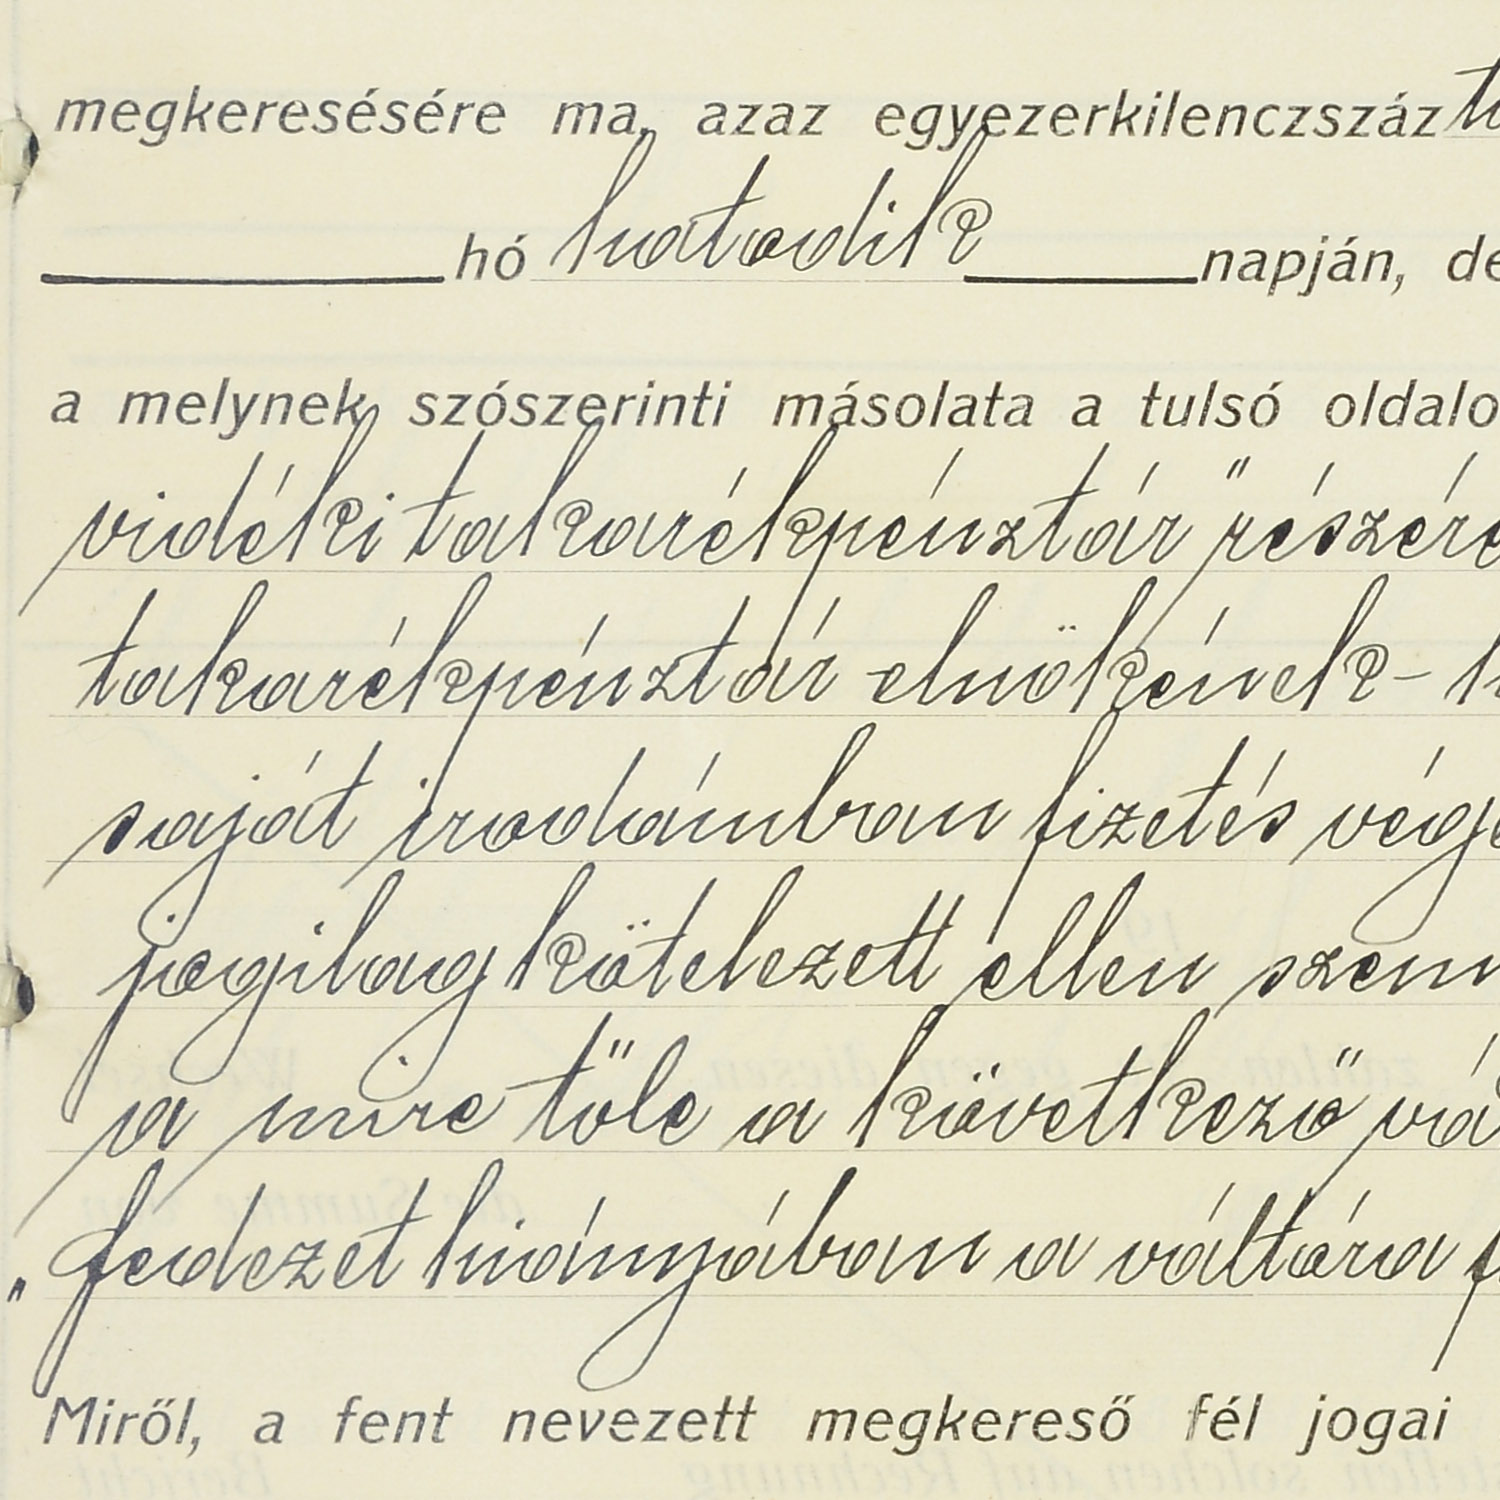 megkeresésére ma, azaz egyezerkilenczszáz
hó hatodik napján, de
a melynek szószerinti másolata a tulsó oldalo
vidéki takarékpénztár" részére
takarékpénztár elnökének -
saját irodámban fizetés vége
jogilag kötelezett ellen szem
a mire tőle a következő vá
"fedezet hiányában a váltóra f
Miről, a fent nevezett megkereső fél jogai